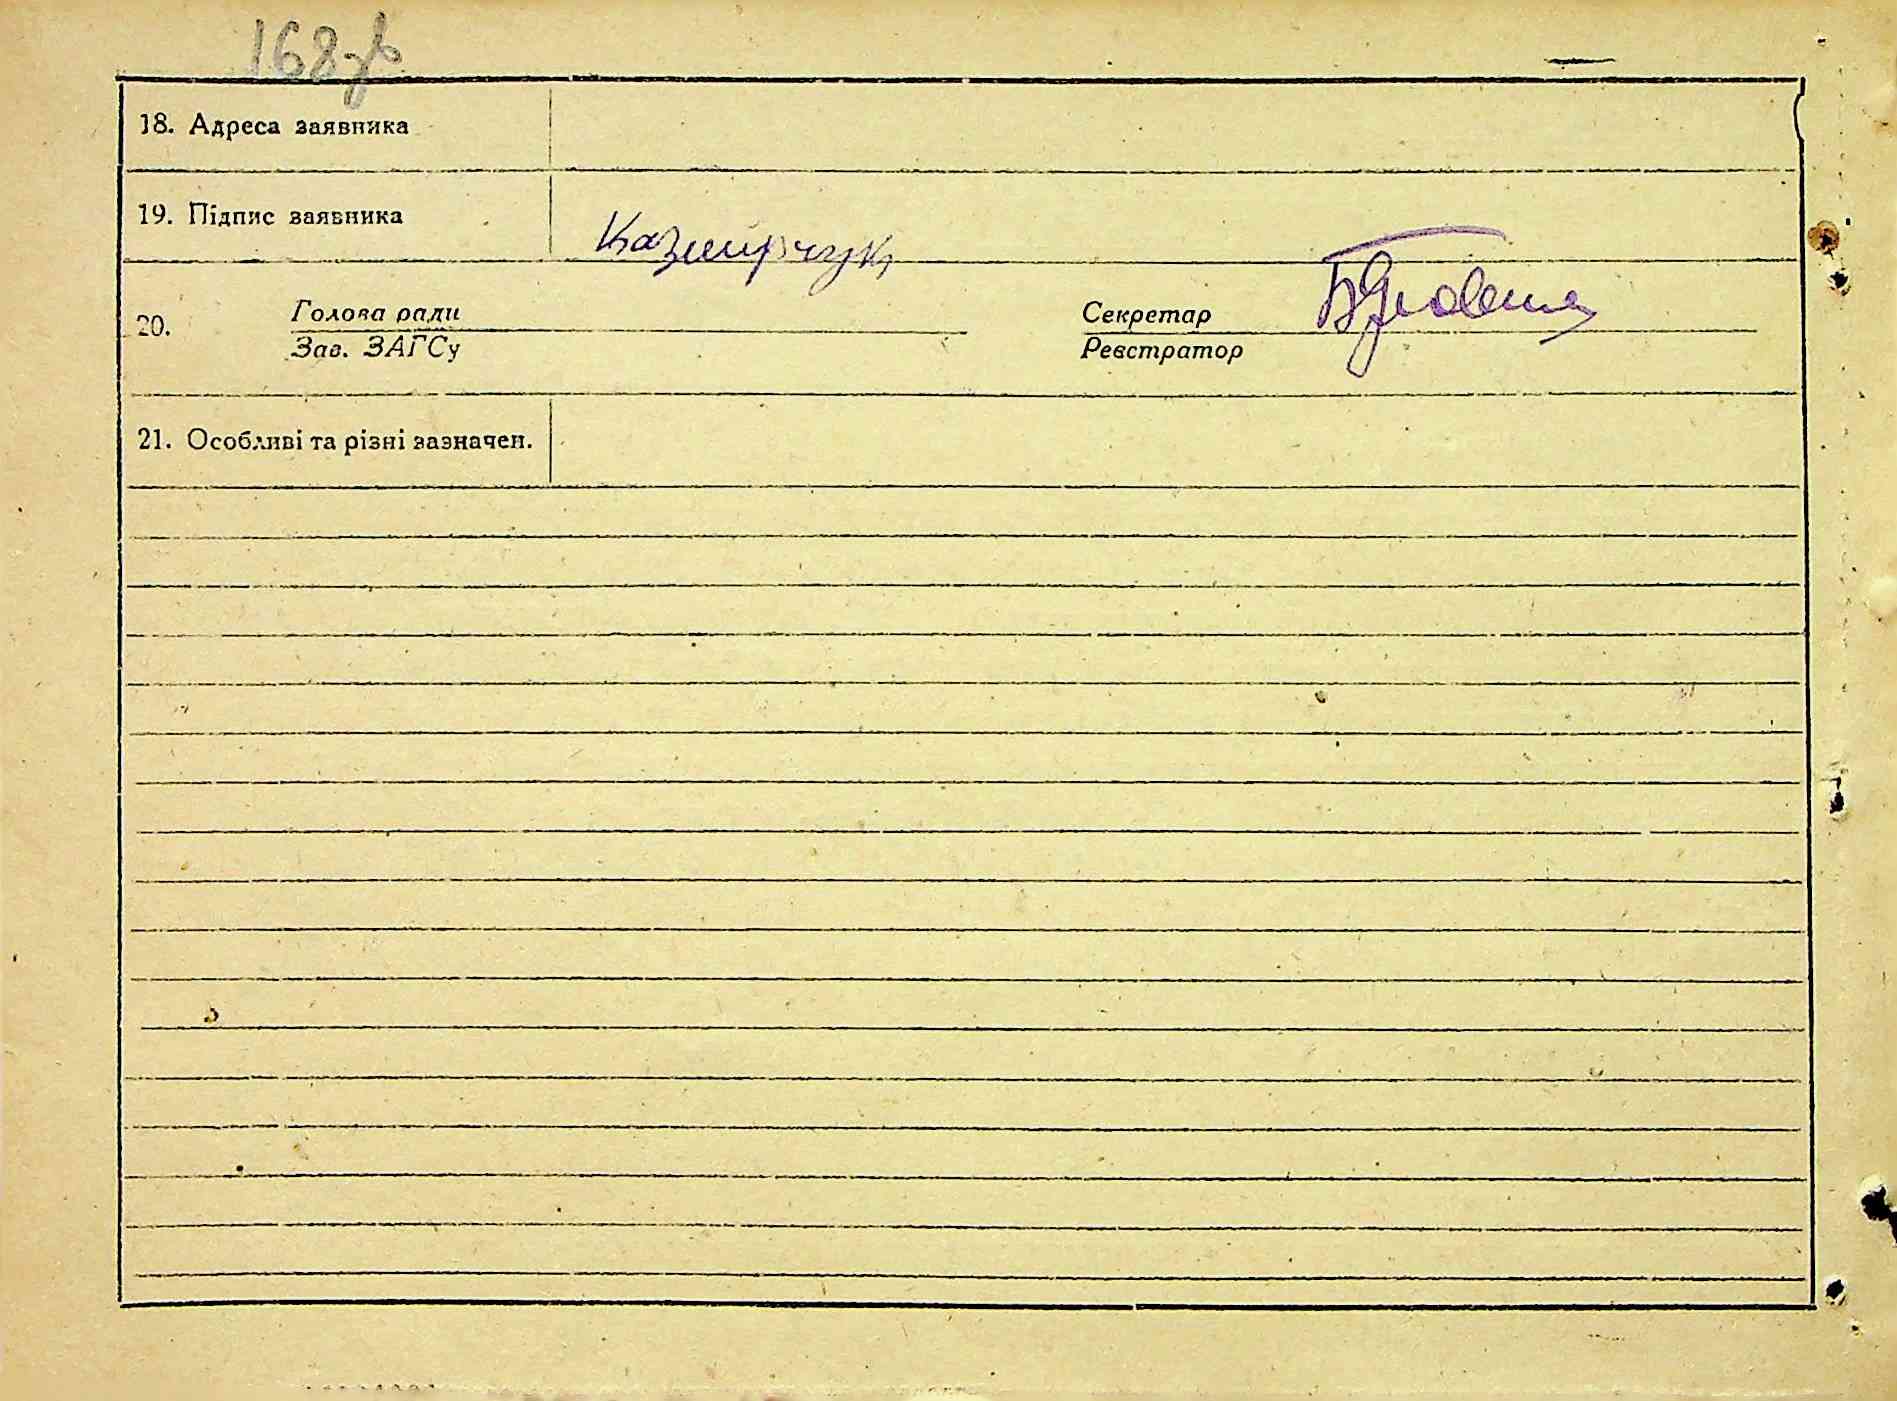 168зв
18. Адреса заявника
19. Підпис заявника
Казмирчук
20.
Голова ради
Зав. ЗАГСу
Секретар
Реєстратор
21. Особливі та різні зазначен.